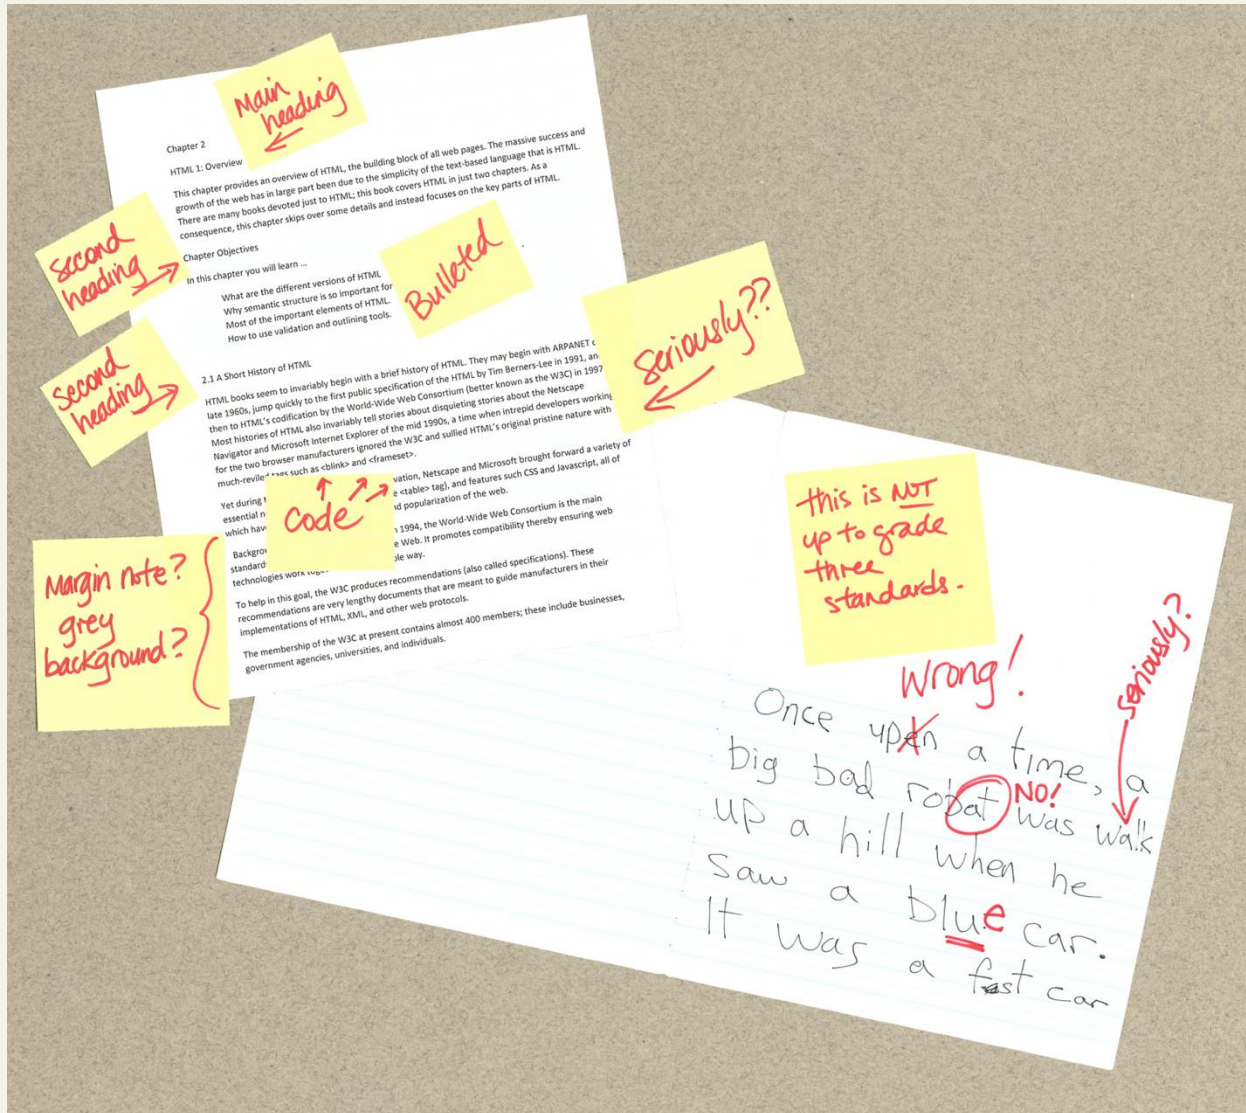 Main
heading
Chapter 2
HTML 1: Overview
This chapter provides an overview of HTML, the building block of all web pages. The massive success and
growth of the web has in large part been due to the simplicity of the text-based language that is HTML.
There are many books devoted just to HTML; this book covers HTML in just two chapters. As a
consequence, this chapter skips over some details and instead focuses on the key parts of HTML.
second
heading
Chapter Objectives
In this chapter you will learn ...
What are the different versions of HTML
Why semantic structure is so important for
Most of the important elements of HTML.
How to use validation and outlining tools.
Bulleted
second
heading
2.1 A Short History of HTML
HTML books seem to invariably begin with a brief history of HTML. They may begin with ARPANET
late 1960s, jump quickly to the first public specification of the HTML by Tim Berners-Lee in 1991, an
then to HTML's codification by the World-Wide Web Consortium (better known as the W3C) in 1997
Most histories of HTML also invariably tell stories about disquieting stories about the Netscape
Navigator and Microsoft Internet Explorer of the mid 1990s, a time when intrepid developers working
for the two browser manufacturers ignored the W3C and sullied HTML's original pristine nature with
much-reviled tags such as <blink> and <frameset>.
Seriously??
Yet during vation, Netscape and Microsoft brought forward a variety of
essential n e <table> tag), and features such CSS and Javascript, all of
which hav d popularization of the web.
Code
Backgrou 1994, the World-Wide Web Consortium is the main
standard e Web. It promotes compatibility thereby ensuring web
technologies work toge ble way.
To help in this goal, the W3C produces recommendations (also called specifications). These
recommendations are very lengthy documents that are meant to guide manufacturers in their
implementations of HTML, XML, and other web protocols.
The membership of the W3C at present contains almost 400 members; these include businesses,
government agencies, universities, and individuals.
Margin note?
grey
background?
this is NOT
up to grade
three
standards.
Wrong!
seriously?
Once upen a time, a
big bad robat was walk
NO!
up a hill when he
saw a blue car.
It was a fast car